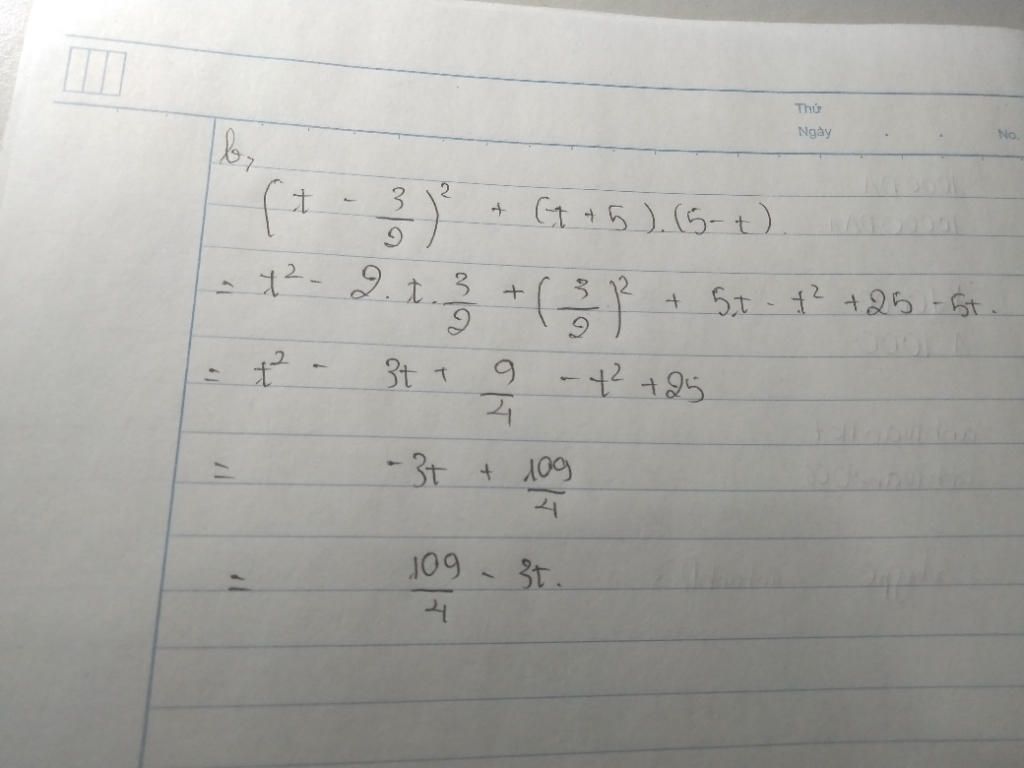 Thứ
Ngày . . No.
b,
(t - 3/2)² + (t + 5).(5 - t).
= t² - 2.t.3/2 + (3/2)² + 5t - t² + 25 - 5t.
= t² - 3t + 9/4 - t² + 25
= -3t + 109/4
= 109/4 - 3t.